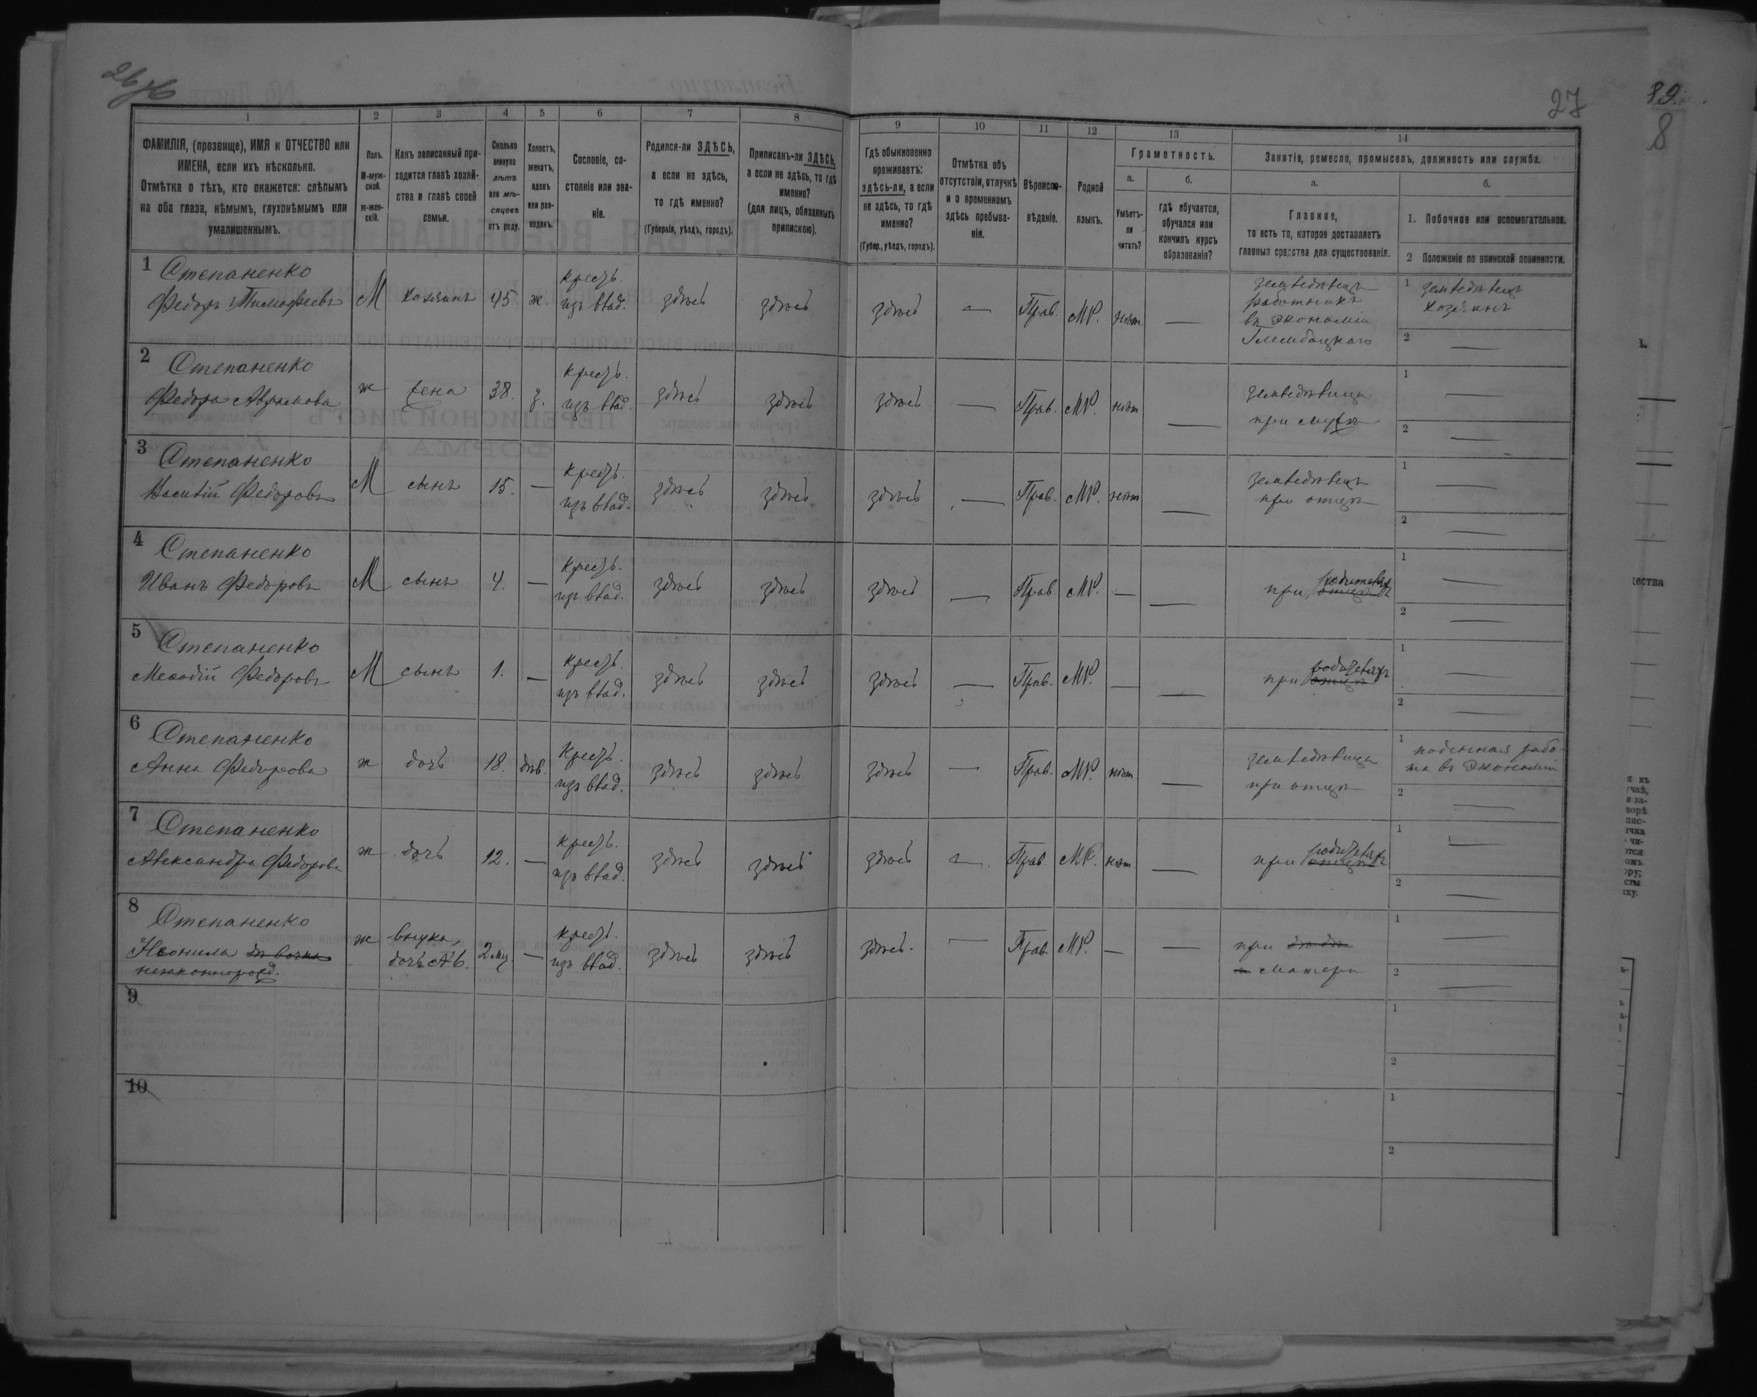 27
39
8
1
2
3
4
5
6
7
8
9
10
11
12
13
14
ФАМИЛІЯ, (прозвище), ИМЯ и ОТЧЕСТВО или
ИМЕНА, если ихъ нѣсколько.
Отмѣтка о тѣхъ, кто окажется: слѣпымъ
на оба глаза, нѣмымъ, глухонѣмымъ или
умалишеннымъ.
Полъ.
М-муж-
ской.
ж-жен-
скій.
Какъ записанный при-
ходится главѣ хозяй-
ства и главѣ своей
семьи.
Сколько
минуло
лѣтъ
или мѣ-
сяцевъ
отъ роду.
Холостъ,
женатъ,
вдовъ
или раз-
веденъ.
Сословіе, со-
стояніе или зва-
ніе.
Родился-ли ЗДѢСЬ,
а если не здѣсь,
то гдѣ именно?
(Губернія, уѣздъ, городъ).
Приписанъ-ли ЗДѢСЬ,
а если не здѣсь, то гдѣ
именно?
(для лицъ, обязанныхъ
припискою).
Гдѣ обыкновенно
проживаетъ:
здѣсь-ли, а если
не здѣсь, то гдѣ
именно?
(Губер., уѣздъ, городъ).
Отмѣтка объ
отсутствіи, отлучкѣ
и о временномъ
здѣсь пребыва-
ніи.
Вѣроиспо-
вѣданіе.
Родной
языкъ.
Грамотность.
а.
Умѣетъ-
ли
читать?
б.
гдѣ обучается,
обучался или
кончилъ курсъ
образованія?
Занятія, ремесло, промыселъ, должность или служба.
а.
Главное,
то есть то, которое доставляетъ
главныя средства для существованія.
б.
1. Побочное или вспомогательное.
2 Положеніе по воинской повинности.
1 Степаненко
Федоръ Тимофеевъ
М хозяинъ 45 ж
крестъ.
изъ влад.
здѣсь здѣсь здѣсь — Прав. МР. нѣт —
земledѣлецъ
работникъ
въ экономіи
1 земледѣлецъ
хозяинъ
2 —
2 Степаненко
Федора Абрамова
ж жена 38. з.
крестъ.
изъ влад.
здѣсь здѣсь здѣсь — Прав. МР. нѣт —
земледѣлица
при мужѣ
1 —
2 —
3 Степаненко
Василій Федоровъ
М сынъ 15. —
крестъ.
изъ влад.
здѣсь здѣсь здѣсь — Прав. МР. нѣт —
земледѣлецъ
при отцѣ
1 —
2 —
4 Степаненко
Иванъ Федоровъ
М сынъ 4. —
крестъ.
изъ влад.
здѣсь здѣсь здѣсь — Прав МР. — —
при родителяхъ
1 —
2 —
5 Степаненко
Мефодій Федоровъ
М сынъ 1. —
крестъ.
изъ влад.
здѣсь здѣсь здѣсь — Прав. МР. — —
при родителяхъ
1 —
2 —
6 Степаненко
Анна Федорова
ж дочь 18. дѣв.
крестъ.
изъ влад.
здѣсь здѣсь здѣсь — Прав. МР. нѣт —
земледѣлица
при отцѣ
1 поденная рабо-
та въ экономіи
2 —
7 Степаненко
Александра Федорова
ж дочь 12. —
крестъ.
изъ влад.
здѣсь здѣсь здѣсь — Прав МР. нѣт —
при родителяхъ
1 —
2 —
8 Степаненко
Неонила
незаконнорожд.
ж внука,
2 мц. —
крестъ.
изъ влад.
здѣсь здѣсь здѣсь. — Прав МР. — —
при
матери
1 —
2 —
9
1
2
10
1
2